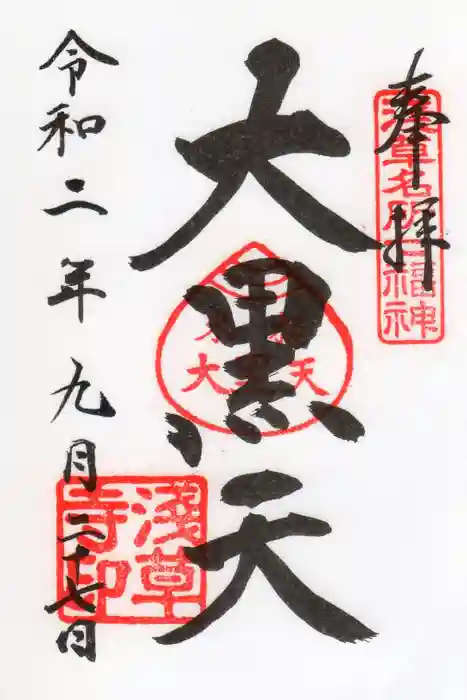 奉拝
浅草名所七福神
大黒天
大黒天
淺草
寺印
令和二年九月二十七日